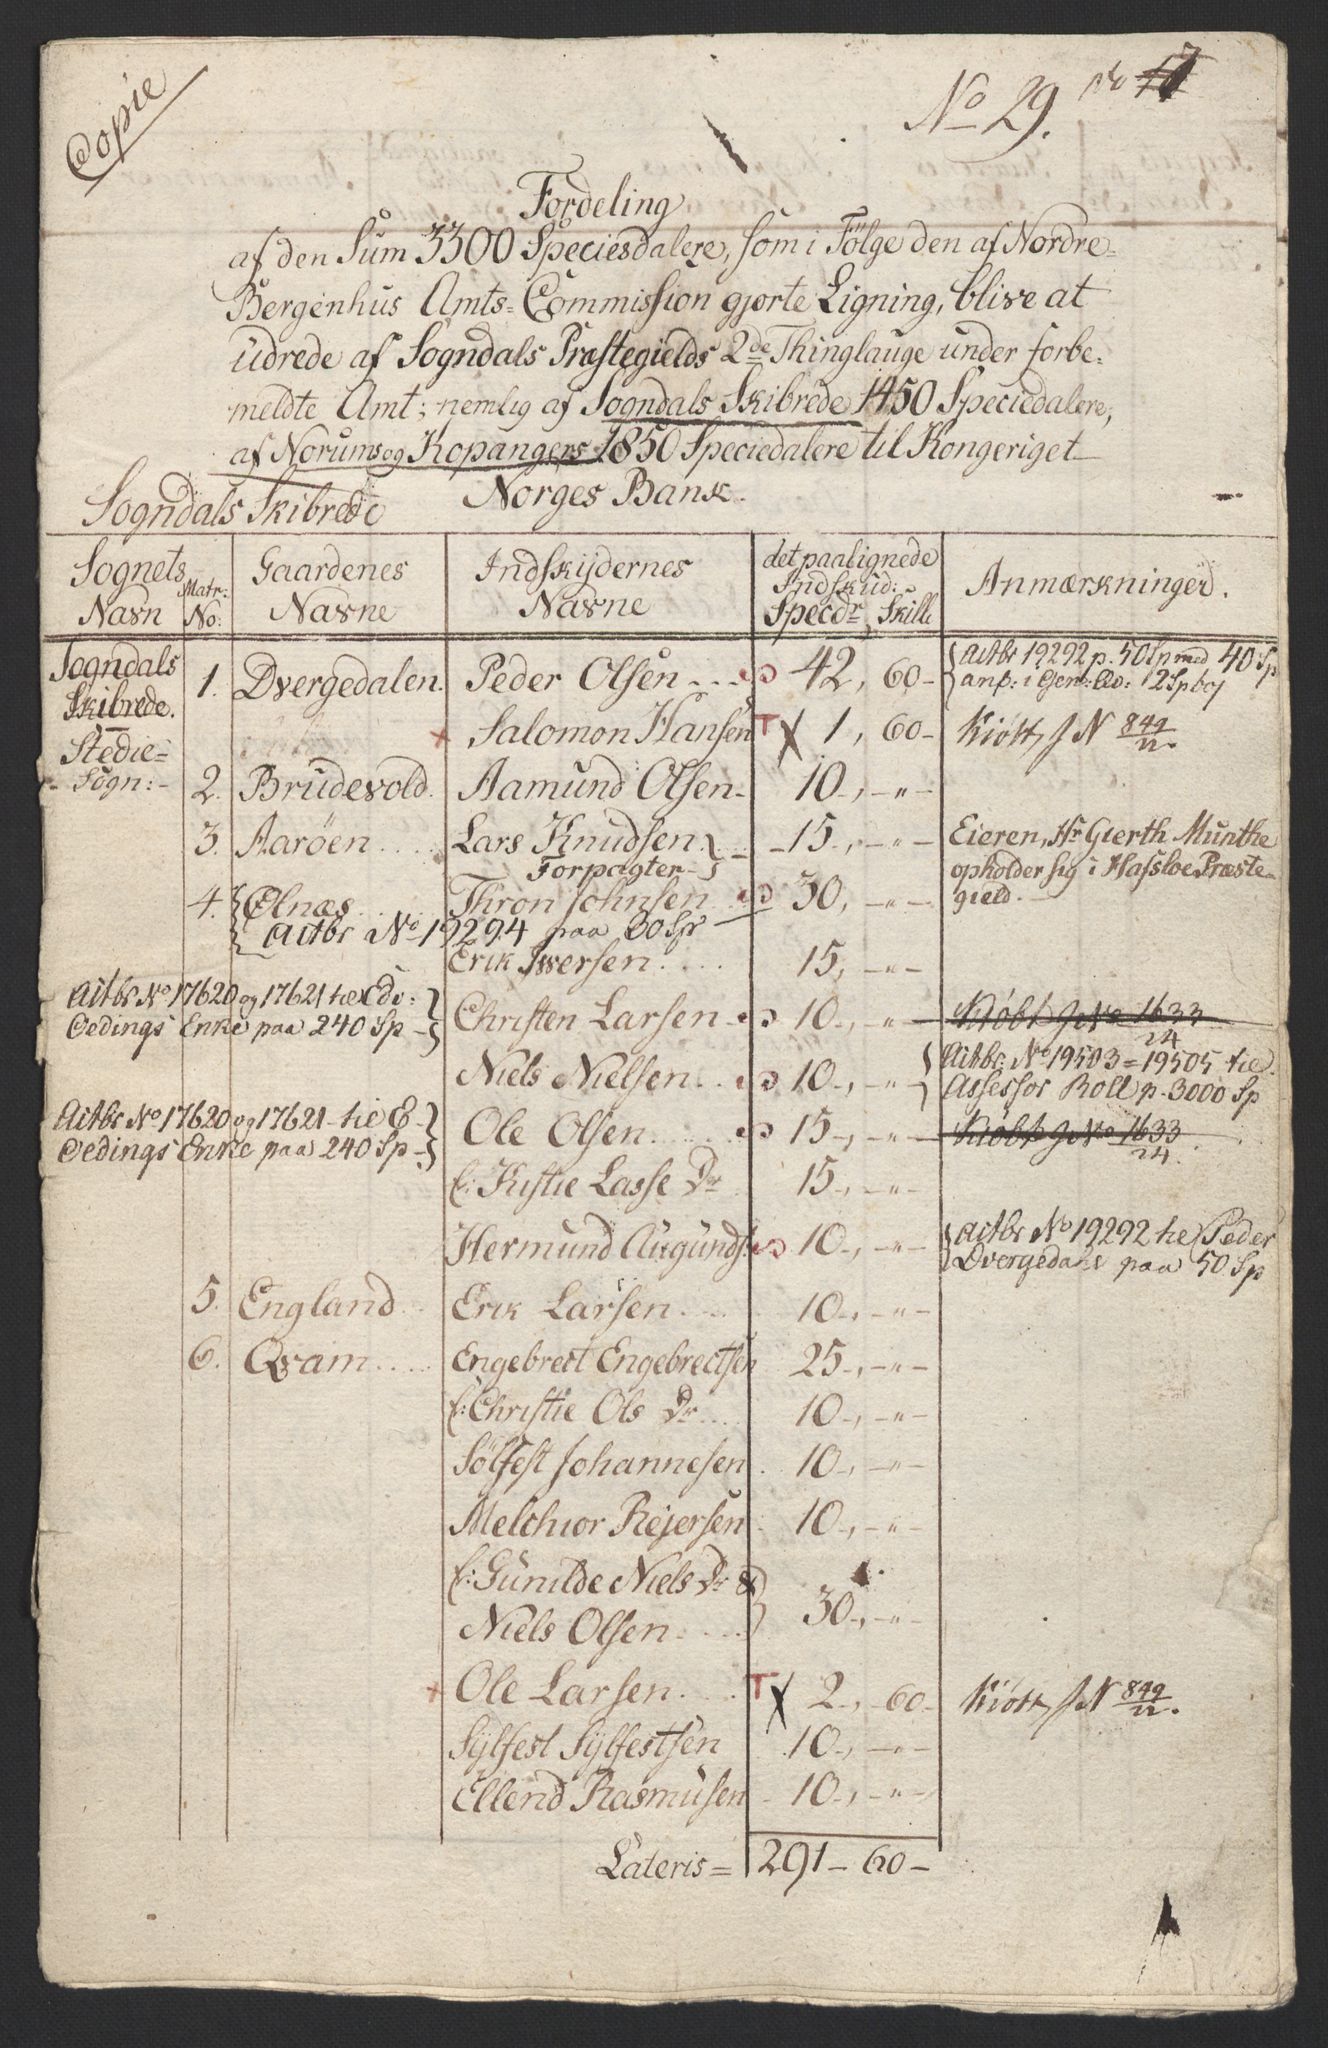 Copie
No 29. No 47
Fordeling
af den Sum 3300 Speciesdalere, som i Følge den af Nordre-
Bergenhus Amts-Commission gjorte Ligning, blive at
udrede af Sogndals Præstegields 2de Thinglauge under forbe-
meldte Amt; nemlig af Sogndals Skibrede 1450 Speciedalere,
af Norums og Kopangers 1850 Speciedalere til Kongeriget
Norges Bank.
Sogndals Skibrede
Sognets Navn | Matr: No: | Gaardenes Navne | Indskydernes Navne | det paalignede Indskud: Specdr, Skill | Anmærkninger.
Sogndals Skibrede. 1. Dvergedalen. Peder Olsen 42, 60- Actbr 19292 p. 50 Sp med 40 Sp
anf: i Gen: 2 Sp
Salomon Hansen T X 1, 60- Kiøtt, J N 849/22.
Stedie-
Sogn:-
2. Brudevold. Aamund Olsen- 10-, -"-
3. Aarøen Lars Knudsen 15-, -"- Eieren, Hr Gierth Munthe
Forpagter opholder sig i Hafsloe Præste-
4. Ølnæs Thron Johnsen 30, -"- gield.
Actbr No 19294 paa 30 Sp
Erik Iwersen 15, -"-
Actbr No 17620 og 17621 til Edv:
Oedings Enke paa 240 Sp Christen Larsen 10-, -"- Kiøbt J No 1633/24
Niels Nielsen 10-, -"- Actbr: No 19503=19505 til
Assessor Roll p. 3000 Sp
Actbr No 17620 og 17621 til E
Oedings Enke paa 240 Sp Ole Olsen 15-, -"- Kiøbt J No 1633/24.
E: Kistie Lasse Dr 15-, -"-
Hermund Augunds: 10-, -"- Actbr No 19292 til Peder
Dvergedal paa 50 Sp
5. England Erik Larsen 10-, -"-
6. Qvam Engebrect Engebrectsen 25-, -"-
E: Christie Ols Dr 10-, -"-
Sølfest Johannesen 10-, -"-
Melchior Rejersen 10-, -"-
E: Gunilde Niels Dr &
Niels Olsen 30-, -"-
Ole Larsen T X 2-, 60- Kiøtt, J N 849/22.
Sylfest Sylfestsen 10-, -"-
Ellend Rasmusen 10-, -"-
Lateris= 291-60-